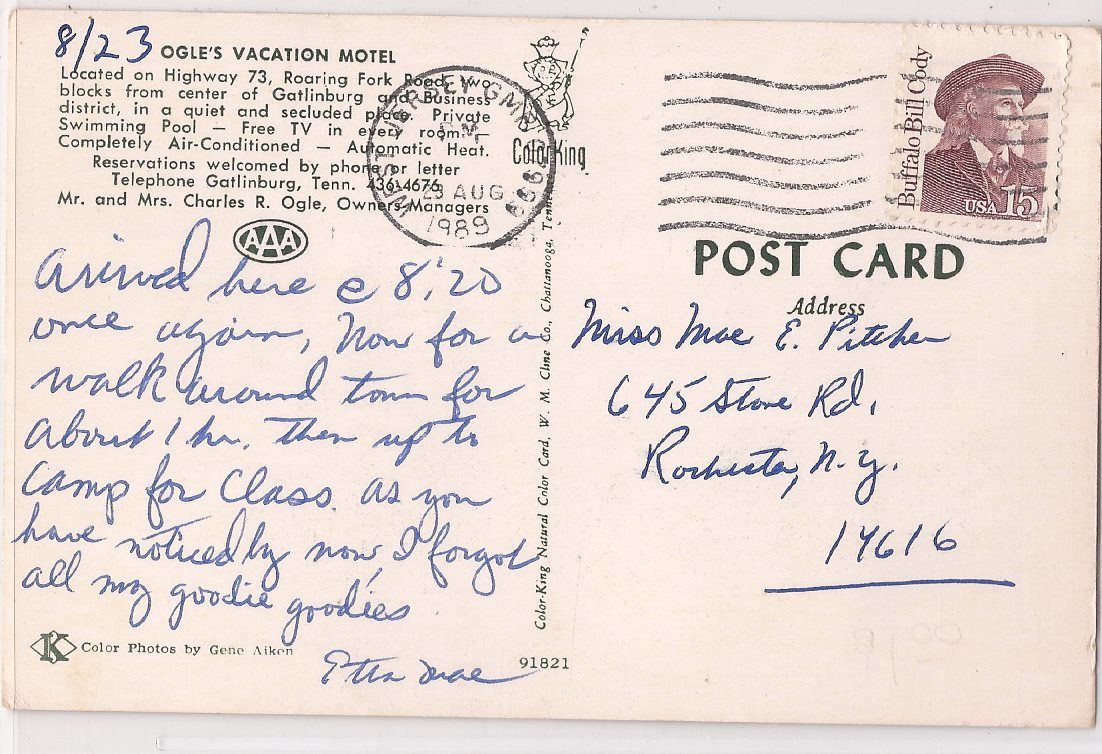 8/23
OGLE'S VACATION MOTEL
Located on Highway 73, Roaring Fork Road, two
blocks from center of Gatlinburg and Business
district, in a quiet and secluded place. Private
Swimming Pool — Free TV in every room —
Completely Air-Conditioned — Automatic Heat.
Reservations welcomed by phone or letter
Telephone Gatlinburg, Tenn. 436-4676
Mr. and Mrs. Charles R. Ogle, Owners-Managers
AAA
Arrived here @ 8:20
once again, Now for a
walk around town for
about 1 hr. then up to
Camp for Class. As you
have noticed by now, I forgot
all my goodie goodies
Etta Mae
K Color Photos by Gene Aiken
91821
Color-King
Color-King Natural Color Card, W. M. Cline Co., Chattanooga, Tenn
WEST JERSEY GMF
PM
23 AUG
1989
Buffalo Bill Cody
USA 15
POST CARD
Address
Miss Mae E. Pitcher
645 Stone Rd.
Rochester, N.Y.
14616